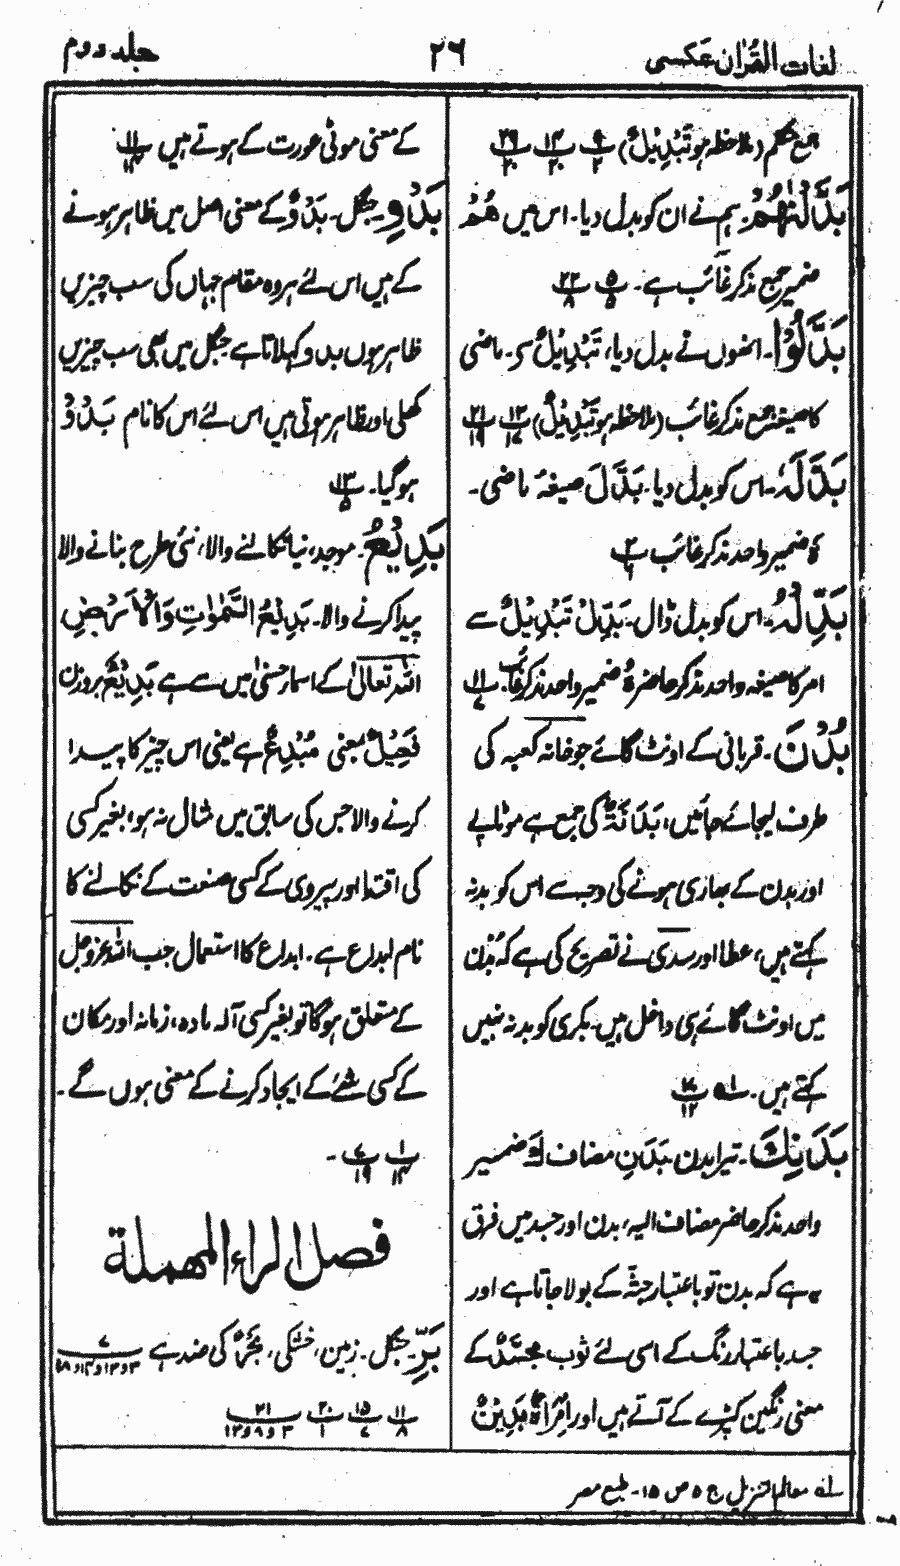 لغات القرآن عکسی
۲۶
جلد دوم
جمع متکلم (ملاحظہ ہو تَبْدِیْلٌ)
بَدَّلْنٰھُمْ۔ ہم نے ان کو بدل دیا۔ اس میں ھُمْ
ضمیر جمع مذکر غائب ہے۔ ۲۲/۸ ۵/۵
بَدَّلُوْا۔ انھوں نے بدل دیا، تَبْدِیْلٌ سے۔ ماضی
کا صیغہ جمع مذکر غائب (ملاحظہ ہو تَبْدِیْلٌ) ۱۳/۱۷ ۲۱/۱۹
بَدَّلَہٗ۔ اس کو بدل دیا۔ بَدَّلَ صیغہ ماضی۔
ہٗ ضمیر واحد مذکر غائب ۲/۶
بَدِّلْہُ۔ اس کو بدل ڈال۔ بَدِّلْ تَبْدِیْلٌ سے
امر کا صیغہ واحد مذکر حاضر ہُ ضمیر واحد مذکر غائب۔ ۱۱/۷
بُدْنَ۔ قربانی کے اونٹ گائے جو خانہ کعبہ کی
طرف لیجائے جائیں، بَدَنَةٌ کی جمع ہے موٹاپے
اور بدن کے بھاری ہونے کی وجہ سے اس کو بدنہ
کہتے ہیں، عطا اور سدی نے تصریح کی ہے کہ بُدْن
میں اونٹ گائے ہی داخل ہیں۔ بکری کو بدنہ نہیں
کہتے ہیں۔ ۱؎ ۱۷/۱۲
بَدَنِكَ۔ تیرا بدن۔ بَدَنِ مضاف لَكَ ضمیر
واحد مذکر حاضر مضاف الیہ، بدن اور جسد میں فرق
یہ ہے کہ بدن تو باعتبار جثہ کے بولا جاتا ہے اور
جسد باعتبار رنگ کے اسی لئے ثوب مجسَّدٌ کے
معنی رنگین کپڑے کے آتے ہیں اور اِمْرَأَةٌ بَدِیْنٌ
کے معنی موٹی عورت کے ہوتے ہیں
بَدْوِ۔ جنگل۔ بَدْوٌ کے معنی اصل میں ظاہر ہونے
کے ہیں اس لئے ہر وہ مقام جہاں کی سب چیزیں
ظاہر ہوں بدو کہلاتا ہے جنگل میں بھی سب چیزیں
کھلی اور ظاہر ہوتی ہیں اس لئے اس کا نام بَدْوٌ
ہوگیا۔ ۱۳/۵
بَدِیْعُ۔ موجد، نیا نکالنے والا، نئی طرح بنانے والا
پیدا کرنے والا۔ بَدِیْعُ السَّمٰوٰتِ وَالْاَرْضِ
اللہ تعالیٰ کے اسمار حسنیٰ میں سے ہے بَدِیْعٌ بروزن
فَعِیْلٌ بمعنی مُبْدِعٌ ہے یعنی اس چیز کا پیدا
کرنے والا جس کی سابق میں مثال نہ ہو، بغیر کسی
کی اقتدا اور پیروی کے کسی صنعت کے نکالنے کا
نام ابداع ہے۔ ابداع کا استعمال جب اللہ عزوجل
کے متعلق ہوگا تو بغیر کسی آلہ مادہ، زمانہ اور مکان
کے کسی شئے کے ایجاد کرنے کے معنی ہوں گے۔
۱/۱۴ ۷/۱۹ ۔
فصل الراء المهملة
بَرِّ۔ جنگل۔ زمین، خشکی، بَحْرٌ کی ضد ہے
۱۱/۸ ۱۵/۷ ۲۰/۱ ۲۱/۳ و ۸ و ۱۳
۱؎ معالم التنزیل ج ۵ ص ۱۵۔ طبع مصر